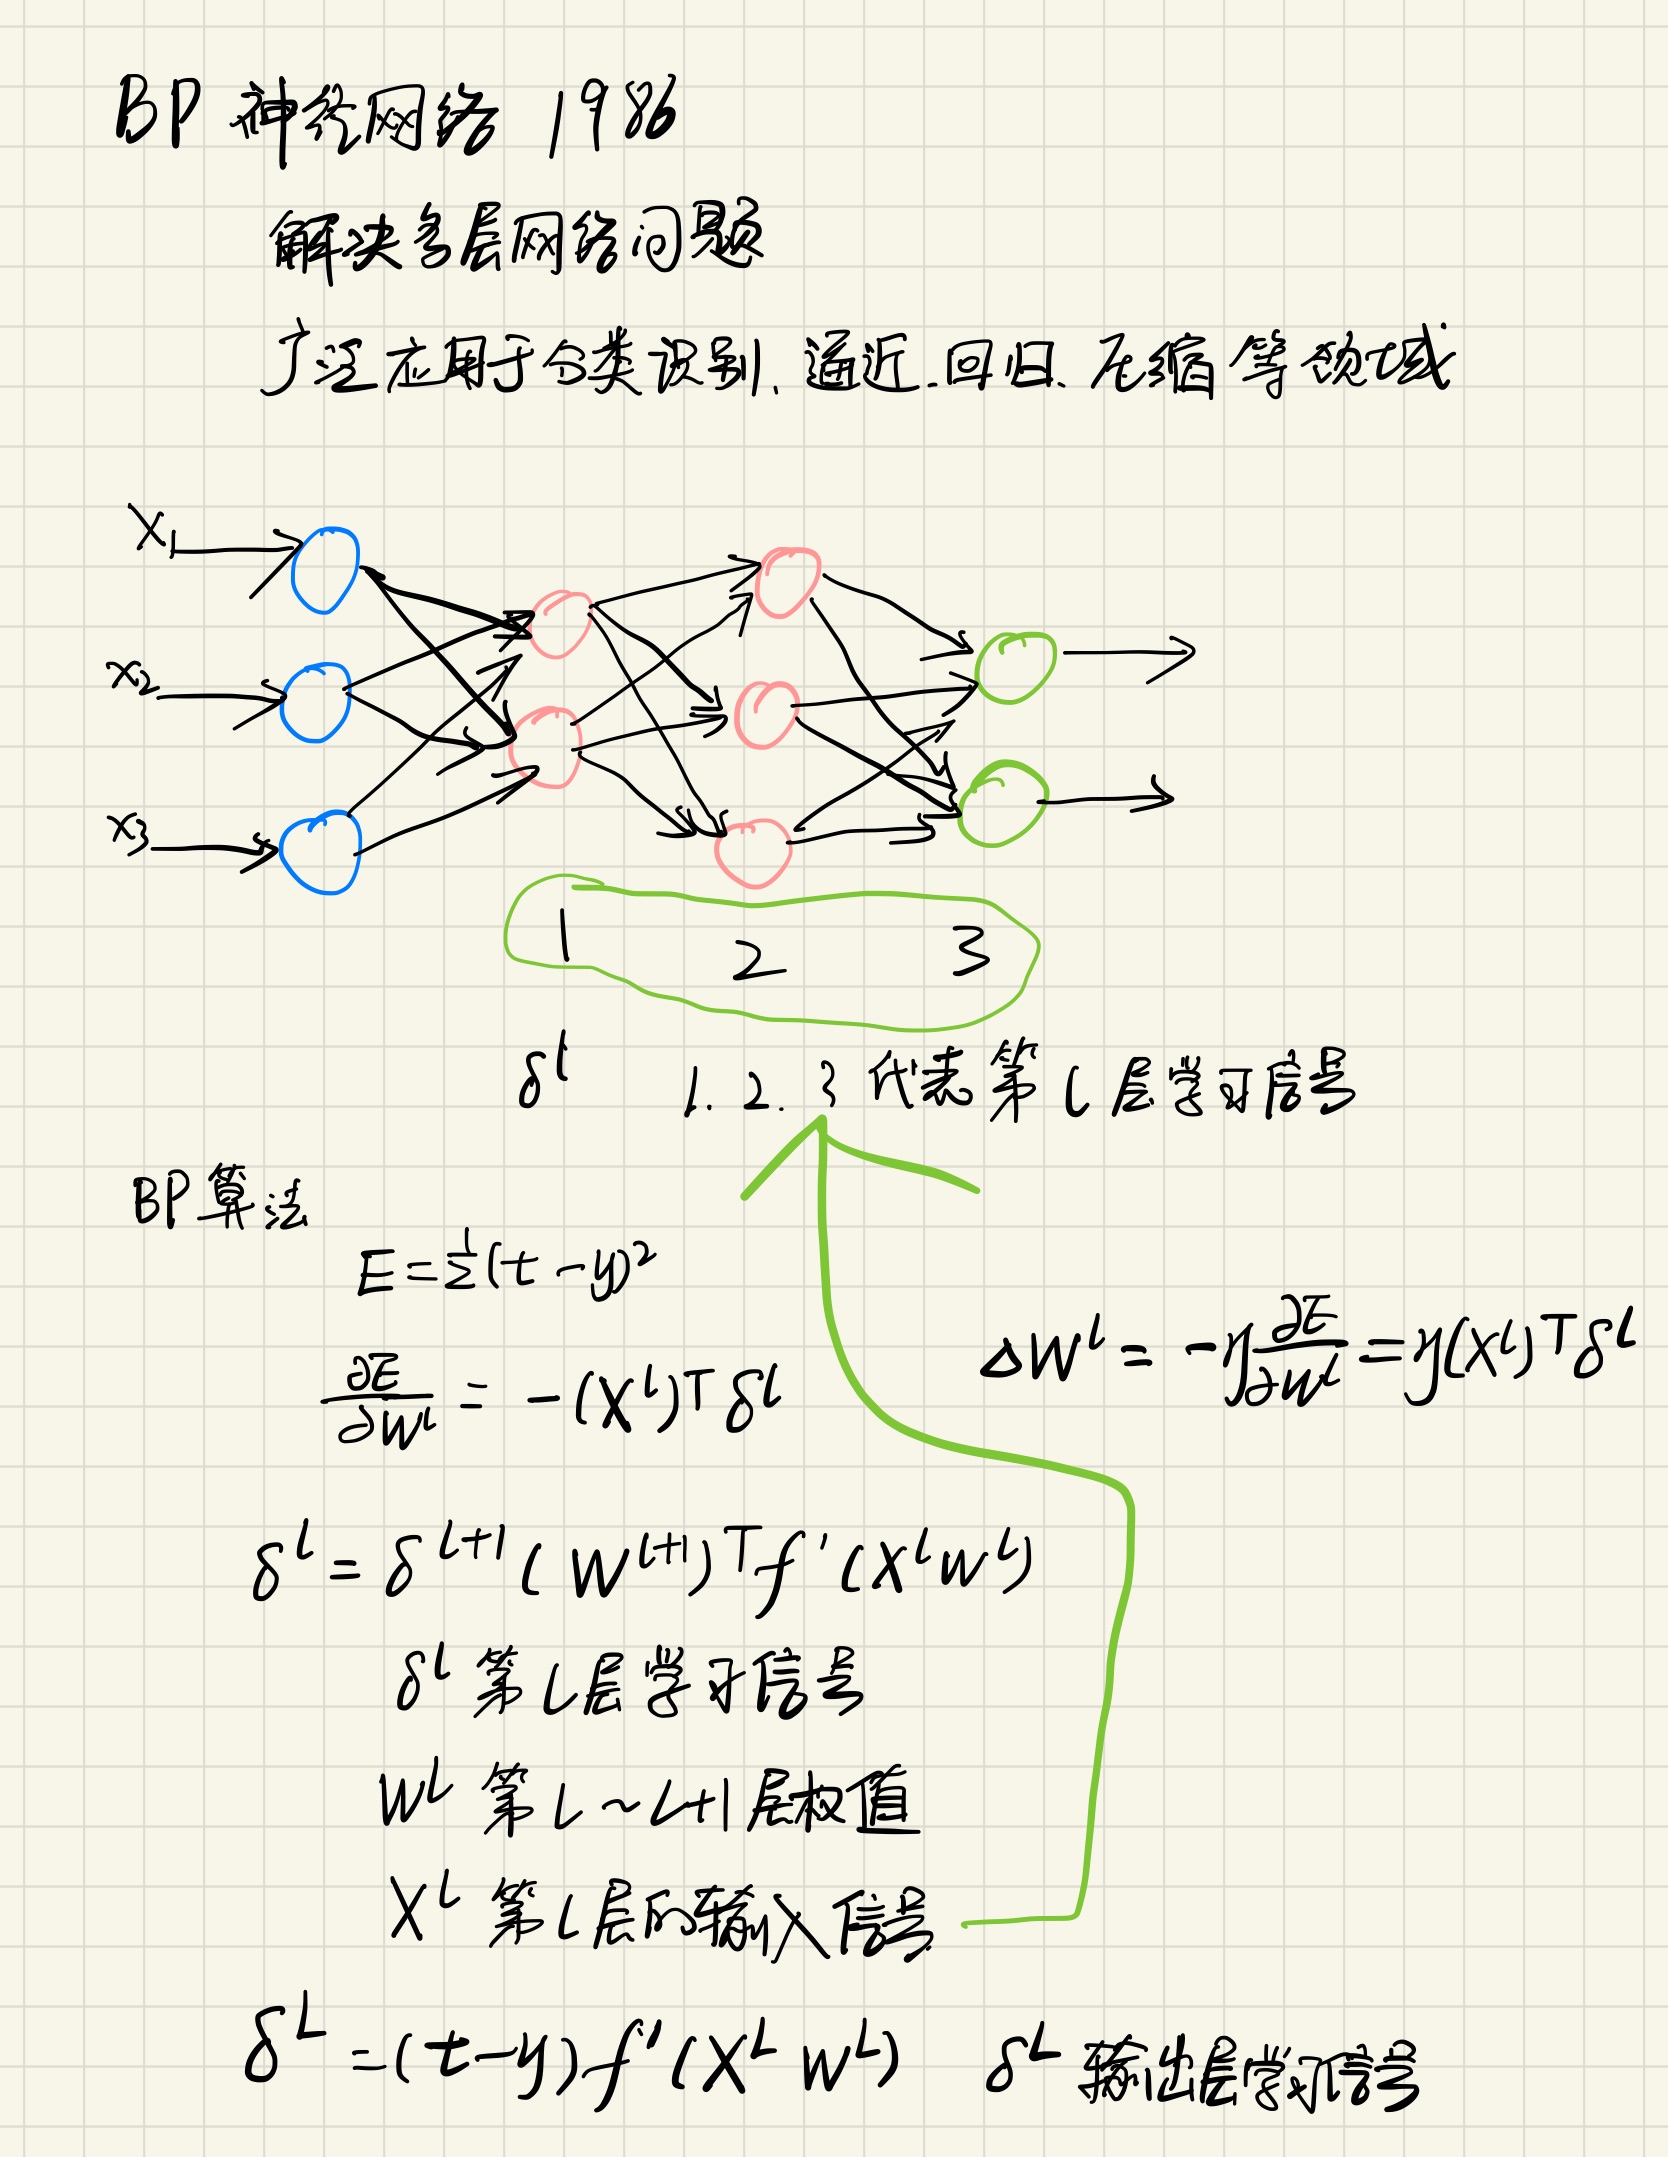 BP 神经网络 1986
解决多层网络问题
广泛应用于分类识别、逼近、回归、压缩等领域
X₁
X₂
X₃
1 2 3
δˡ 1. 2. 3 代表第 l 层学习信号
BP 算法
E = ½(t - y)²
∂E/∂Wˡ = -(Xˡ)ᵀ δˡ
ΔWˡ = -η ∂E/∂Wˡ = η(Xˡ)ᵀ δˡ
δˡ = δˡ⁺¹ (Wˡ⁺¹)ᵀ f'(XˡWˡ)
δˡ 第 l 层学习信号
Wˡ 第 l ~ l+1 层权值
Xˡ 第 l 层的输入信号
δᴸ = (t-y) f'(Xᴸ Wᴸ) δᴸ 输出层学习信号